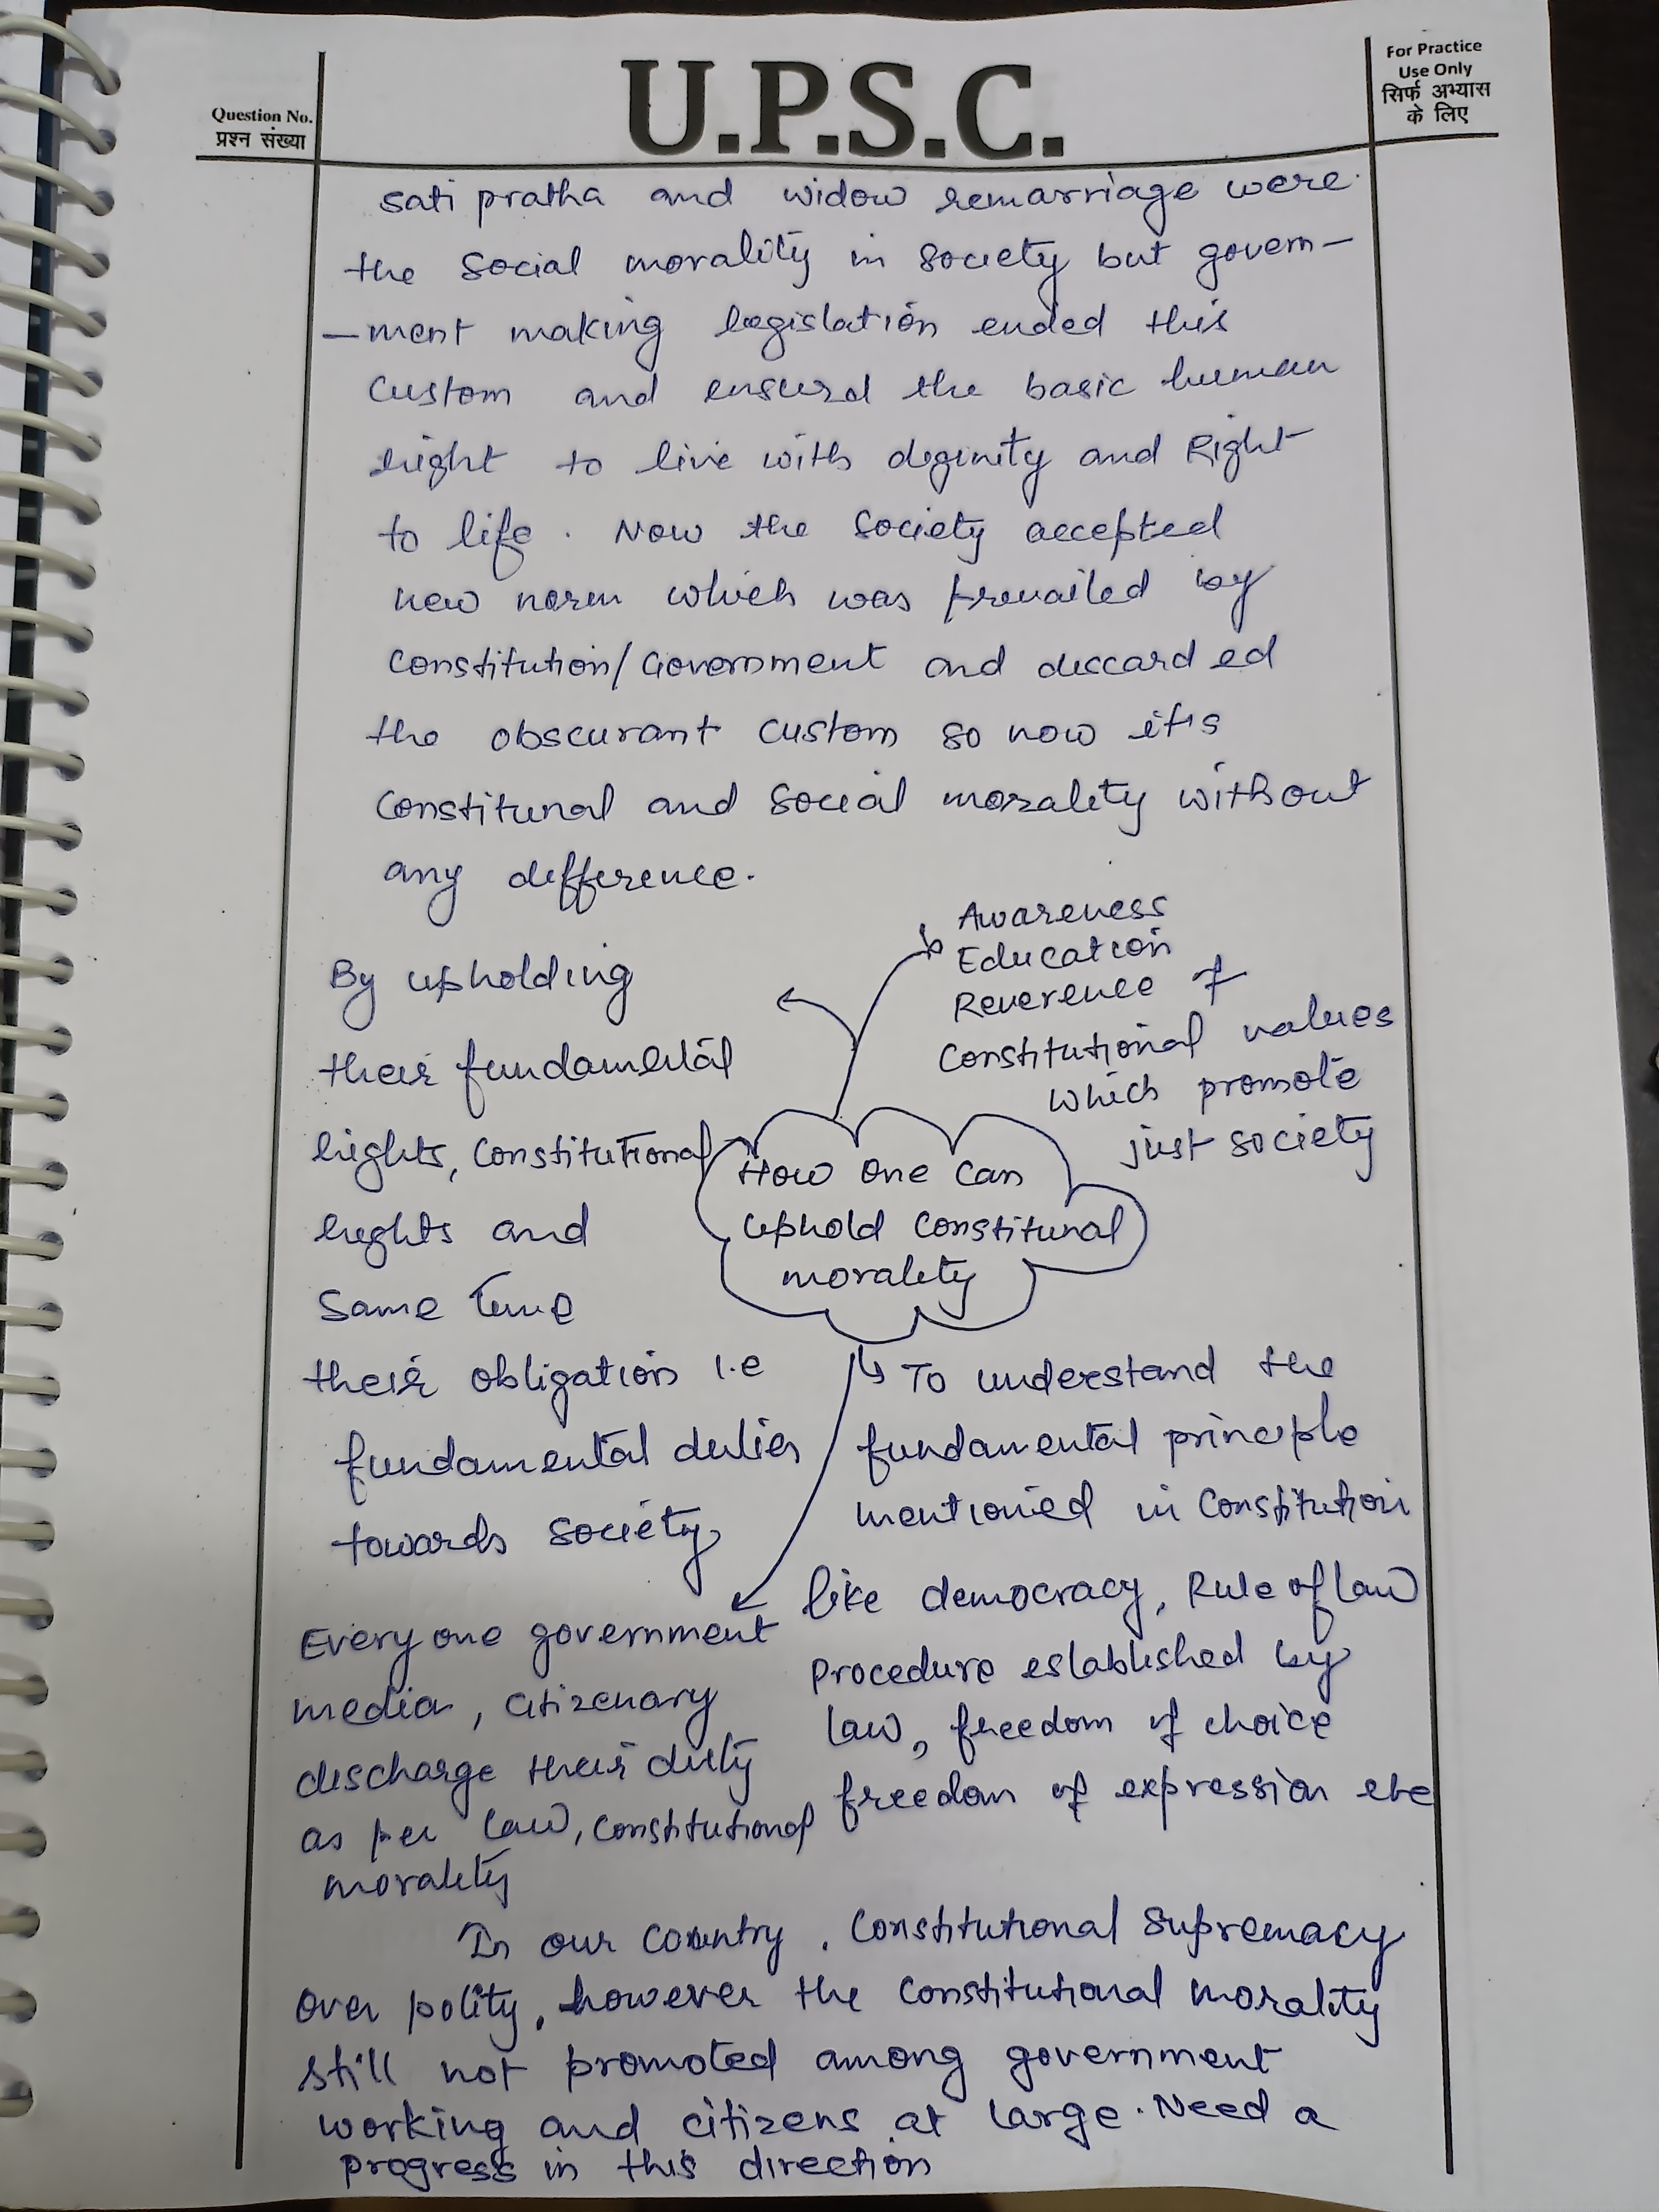 Question No.
प्रश्न संख्या
U.P.S.C.
For Practice
Use Only
सिर्फ अभ्यास
के लिए
sati pratha and widow remarriage were
the social morality in society but govern-
-ment making legislation ended this
custom and ensurd the basic human
right to live with diginity and Right
to life. Now the society accepted
new norm which was prevailed by
constitution/Government and discarded
the obscurant custom so now it's
constitunal and social morality without
any difference.
Awareness
Education
Reverence of
constitutional values
which promote
just society
By upholding
their fundamental
rights, constitutional
rights and
same time
their obligation i.e
fundamental duties
towards society
How one can
uphold constitunal
morality
To understand the
fundamental principle
mentionied in constitution
like democracy, Rule of law
Procedure established by
law, freedom of choice
freedom of expression etc
Every one government
media, citizenary
discharge their duty
as per law, constitutional
morality
In our country, constitutional supremacy
over polity, however the constitutional morality
still not promoted among government
working and citizens at large. Need a
progress in this direction